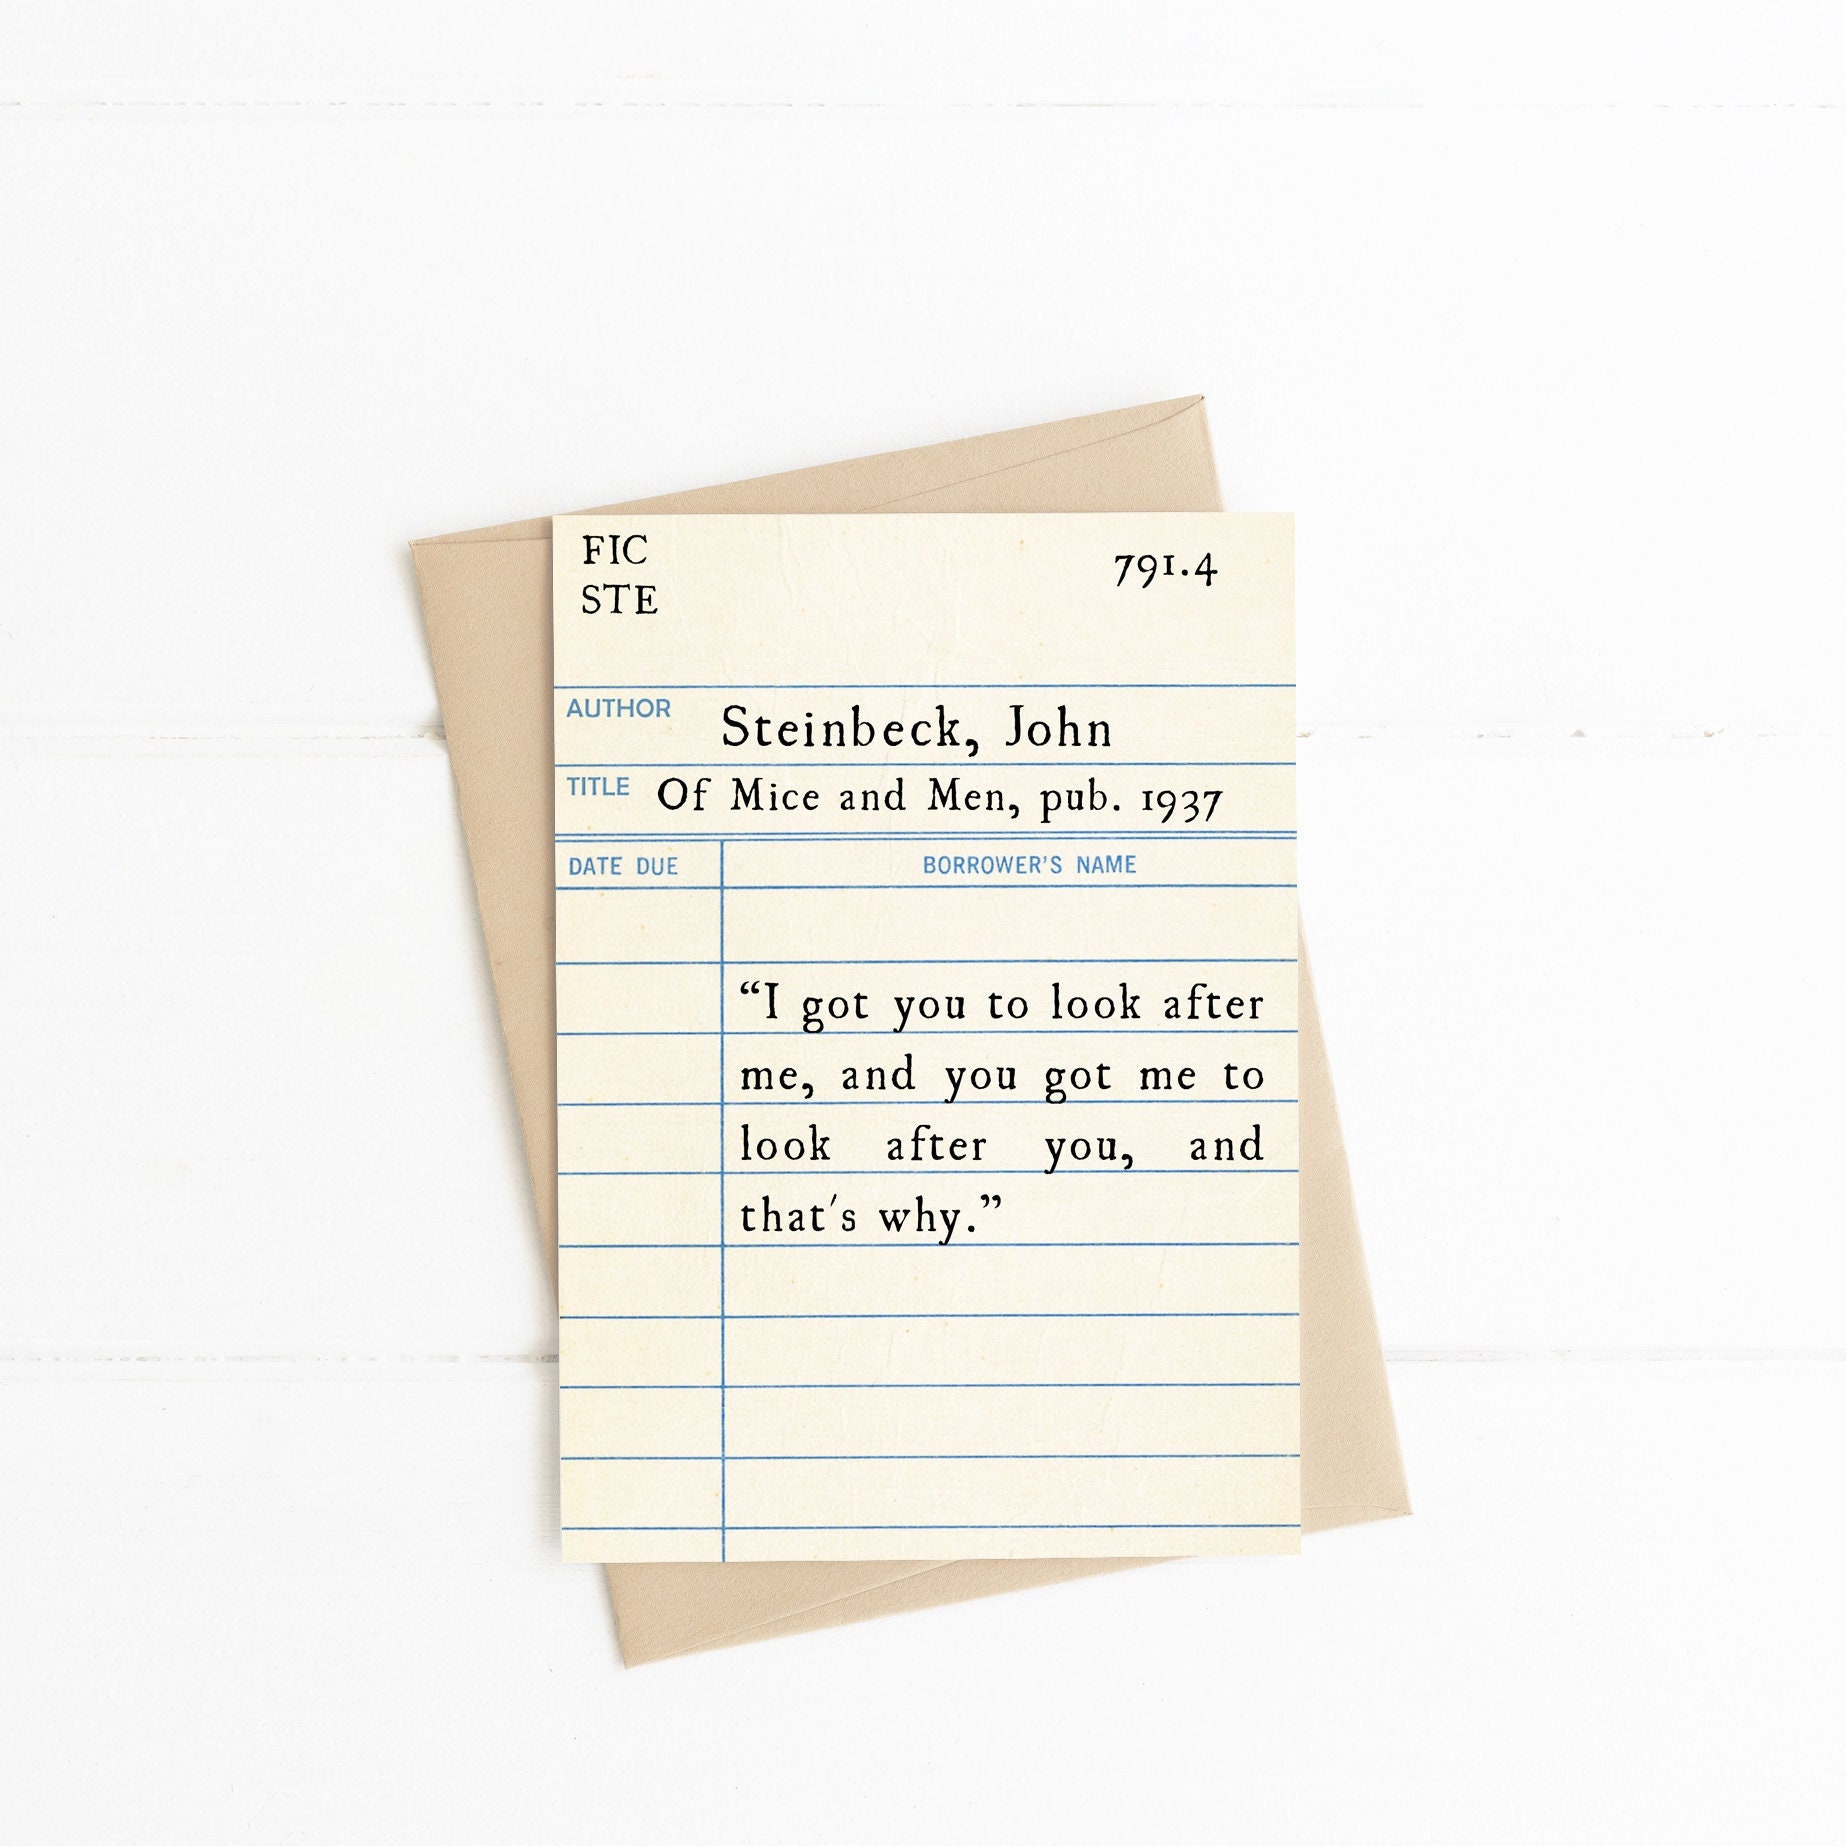 FIC
STE
791.4
AUTHOR Steinbeck, John
TITLE Of Mice and Men, pub. 1937
DATE DUE BORROWER'S NAME
“I got you to look after
me, and you got me to
look after you, and
that's why.”